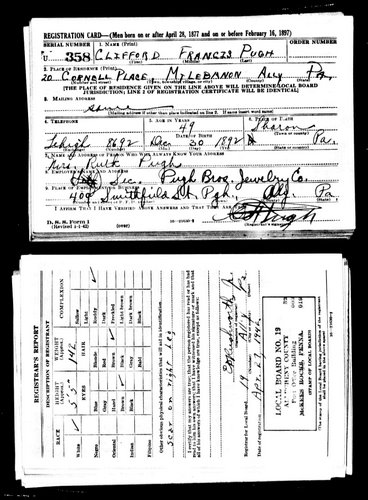 REGISTRATION CARD—(Men born on or after April 28, 1877 and on or before February 16, 1897)
SERIAL NUMBER 1. NAME (Print) ORDER NUMBER
U 358 CLIFFORD FRANCIS PUGH
(First) (Middle) (Last)
2. PLACE OF RESIDENCE (Print)
20 CORNELL PLACE, MT LEBANON ALLY PA.
(Number and street) (Town, township, village, or city) (County) (State)
[THE PLACE OF RESIDENCE GIVEN ON THE LINE ABOVE WILL DETERMINE LOCAL BOARD
JURISDICTION; LINE 2 OF REGISTRATION CERTIFICATE WILL BE IDENTICAL]
3. MAILING ADDRESS
Same
[Mailing address if other than place indicated on line 2. If same insert word same]
4. TELEPHONE 5. AGE IN YEARS 6. PLACE OF BIRTH
49 Sharon
DATE OF BIRTH
Lehigh 8692 Dec 30 1892 Pa.
7. NAME AND ADDRESS OF PERSON WHO WILL ALWAYS KNOW YOUR ADDRESS
Mrs. Ruth Pugh
8. EMPLOYER'S NAME AND ADDRESS
Sec. Pugh Bros. Jewelry Co.
9. PLACE OF EMPLOYMENT OR BUSINESS
409 Smithfield St. Pgh. Alg. Pa
I AFFIRM THAT I HAVE VERIFIED ABOVE ANSWERS AND THAT THEY ARE TRUE.
D. S. S. Form 1
(Revised 4-1-42) (over)
REGISTRAR'S REPORT
DESCRIPTION OF REGISTRANT
RACE
White ✓
Negro
Oriental
Indian
Filipino
HEIGHT (Approx.)
5' 5"
WEIGHT (Approx.)
142
EYES
Blue
Gray
Hazel ✓
Brown
Black
HAIR
Blonde
Red
Brown
Black ✓
Gray
Bald
COMPLEXION
Sallow
Light
Ruddy ✓
Dark
Freckled
Light brown
Dark brown
Black
Other obvious physical characteristics that will aid in identification
Scar on right leg
I certify that my answers are true; that the person registered has read or has had read to him his own answers; that I have witnessed his signature or mark and that all of his answers of which I have knowledge are true, except as follows:
Registrar for Local Board 19
Date of registration Apr. 27, 1942
LOCAL BOARD NO. 19
ALLEGHENY COUNTY
Post Office Building
McKEES ROCKS, PENNA.
(STAMP OF LOCAL BOARD)
(The stamp of the Local Board having jurisdiction of the registrant shall be placed in the above space)